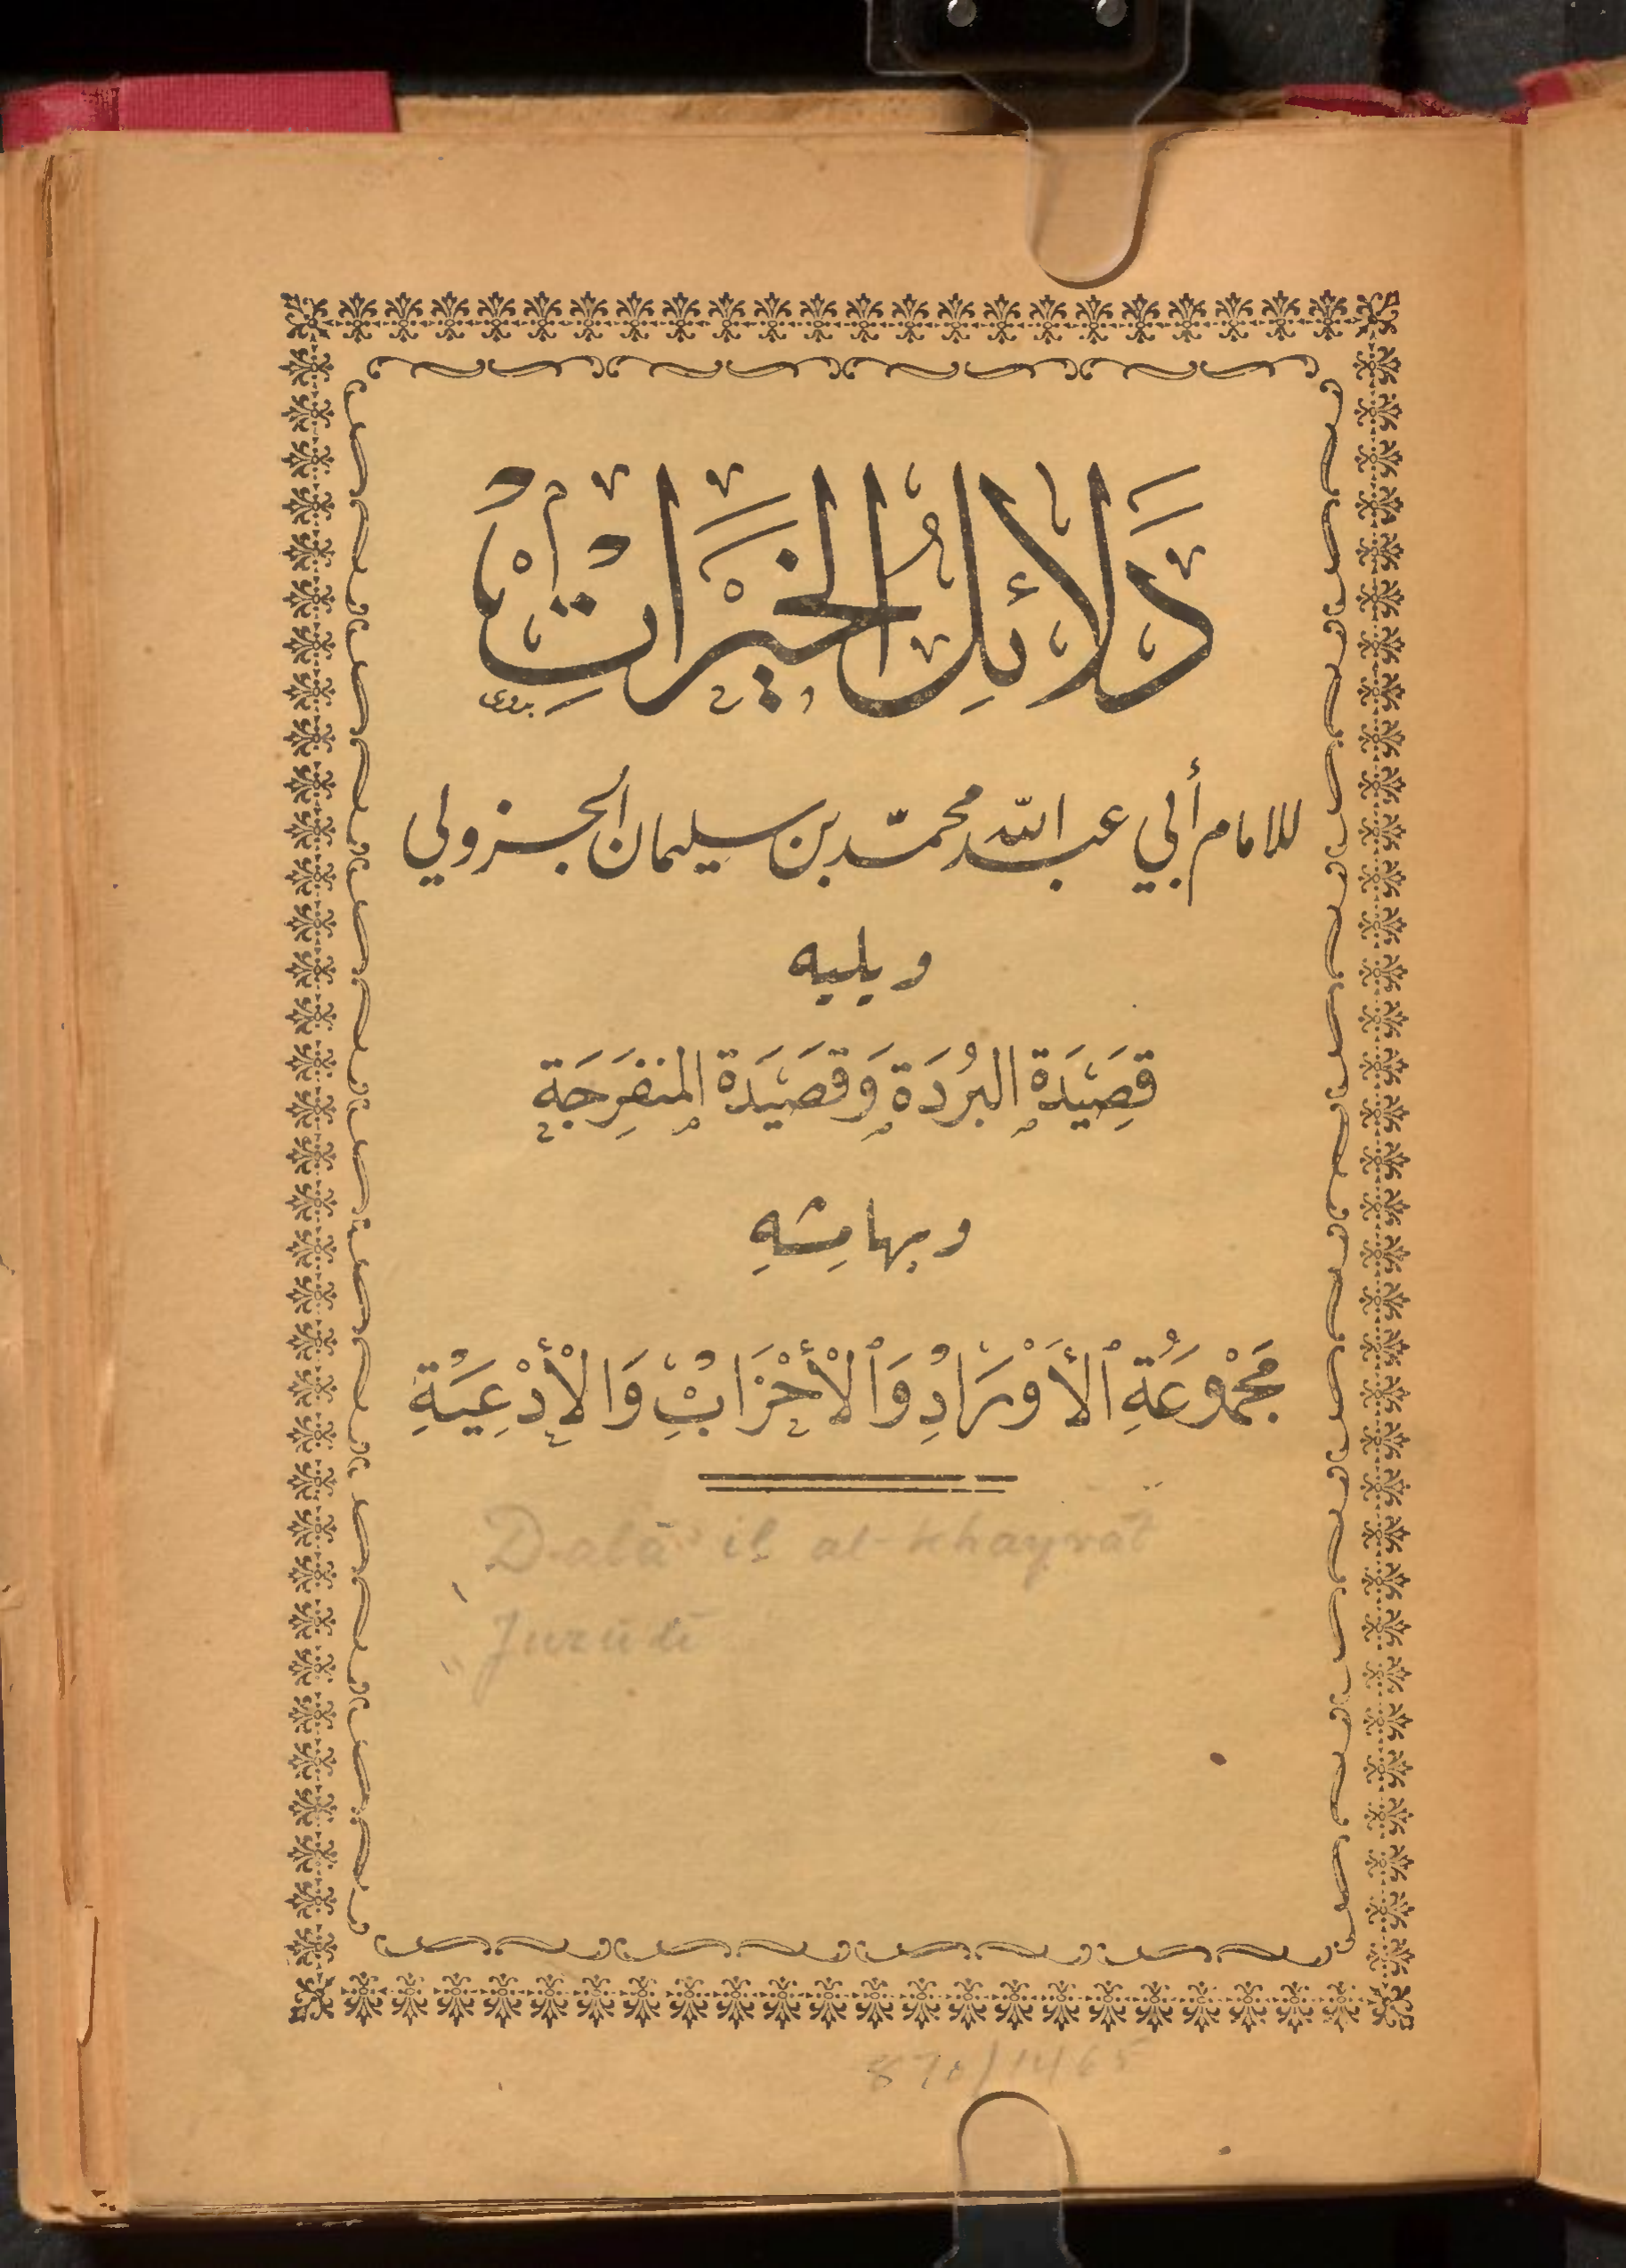 دَلَائِلُ الْخَيْرَاتِ
للامام أبي عبد اللّه محمّد بن سليمان الجزولي
ويليه
قَصِيَدَة البُردَة وَقصَيَدَة المنفَرِجَة
وبهامِشِهِ
مَجْمُوعَةِ ٱلأَوْرَادِ وَٱلْأَحْزَابِ وَالْأَدْعِيَةِ
Dalā'il al-khayrāt